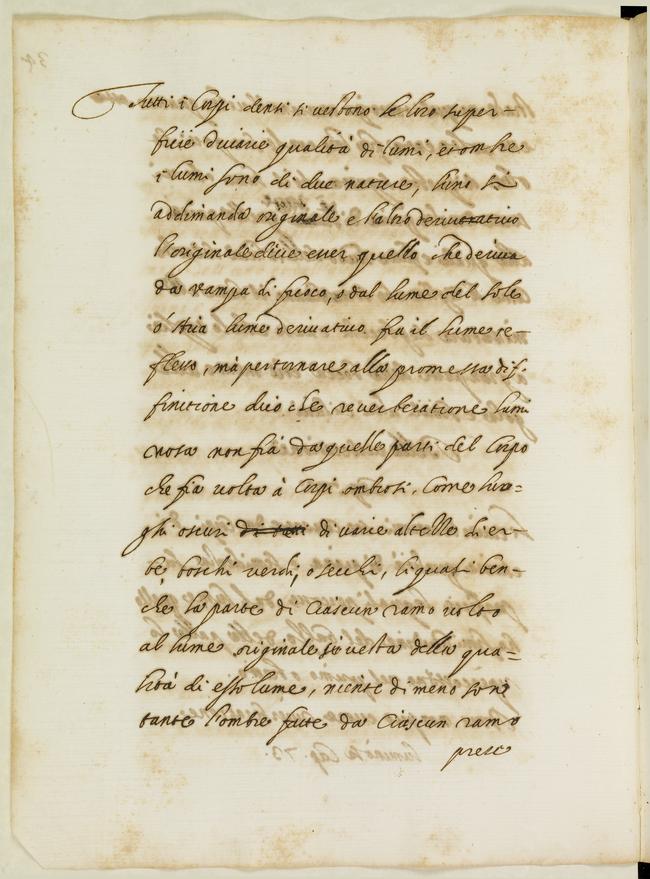 Tutti i Corpi densi si vestono le loro super=
ficie di varie qualità di lumi, et ombre
i lumi sono di due nature, l'uno si
addimanda originale e l'altro derivativo
l'originale dico esser quello che deriva
da vampa di fuoco, o dal lume del sole
ò Aria lume derivativo fia il lume re=
flesso, mà per tornare alla promessa dif=
finitione dico che reverberatione lumi
nosa non fia da quelle parti del Corpo
che fia volta à Corpi ombrosi, Come luo=
ghi oscuri di tetti di varie altezze di er=
be, boschi verdi, o secchi, li quali ben=
che la parte di Ciascun ramo volto
al lume originale si vesta della qua=
lità di esso lume, niente di meno sono
tante l'ombre fatte da Ciascun ramo
presc